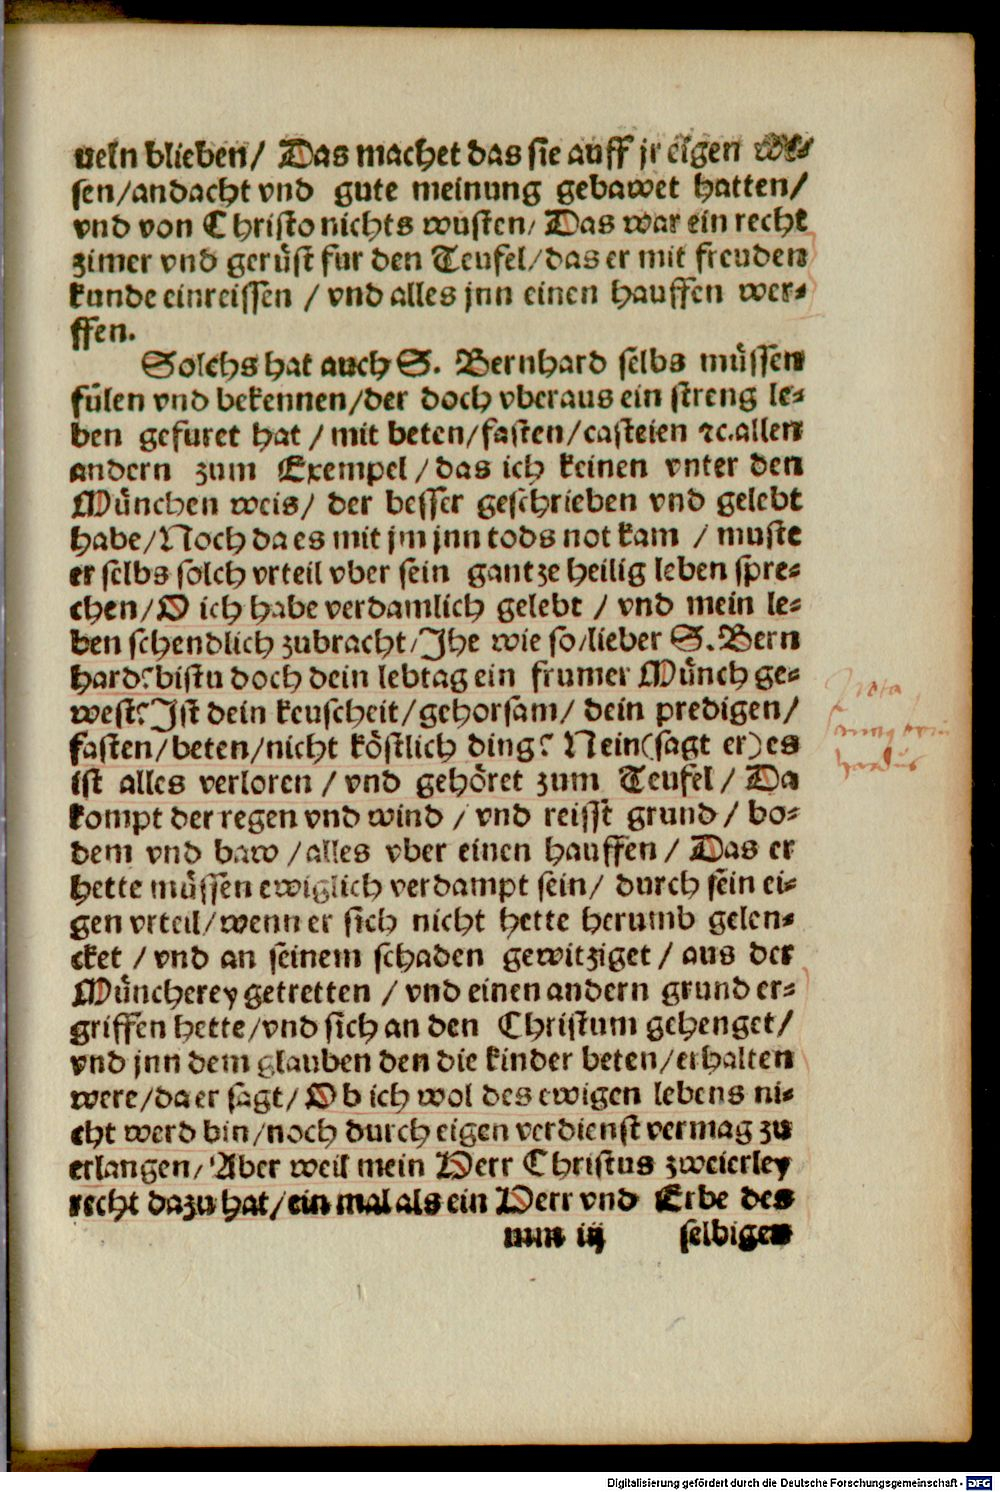 ueln blieben/ Das machet das sie auff jr eigen we⸗
sen/andacht vnd gute meinung gebawet hatten/
vnd von Christo nichts wusten/ Das war ein recht
zimer vnd gerüst fur den Teufel/das er mit freuden
kunde einreissen / vnd alles jnn einen hauffen wer⸗
ffen.
Solchs hat auch S. Bernhard selbs müssen
fülen vnd bekennen/der doch vberaus ein streng le⸗
ben gefuret hat / mit beten/fasten/casteien ⁊c.allen
andern zum Exempel/das ich keinen vnter den
München weis/ der besser geschrieben vnd gelebt
habe/Noch da es mit jm jnn tods not kam / muste
er selbs solch vrteil vber sein gantze heilig leben spre⸗
chen/O ich habe verdamlich gelebt / vnd mein le⸗
ben schendlich zubracht/Jhe wie so/lieber S.Bern
hard?bistu doch dein lebtag ein frumer Münch ge⸗
west?Jst dein keuscheit/gehorsam/ dein predigen/
fasten/beten/nicht köstlich ding? Nein(sagt er)es
ist alles verloren / vnd gehöret zum Teufel/ Da
kompt der regen vnd wind / vnd reisst grund / bo⸗
dem vnd baw /alles vber einen hauffen/ Das er
hette müssen ewiglich verdampt sein/ durch sein ei⸗
gen vrteil/wenn er sich nicht hette herumb gelen⸗
cket / vnd an seinem schaden gewitziget/ aus der
Müncherey getretten / vnd einen andern grund er⸗
griffen hette/vnd sich an den Christum gehenget/
vnd jnn dem glauben den die kinder beten/erhalten
were/da er sagt/ Ob ich wol des ewigen lebens ni⸗
cht werd bin/noch durch eigen verdienst vermag zu
erlangen/ Aber weil mein Herr Christus zweierley
recht dazu hat/ein mal als ein Herr vnd Erbe des
nun iij selbigen
Nota
hardus
Digitalisierung gefördert durch die Deutsche Forschungsgemeinschaft - DFG